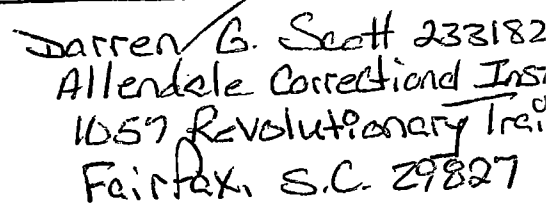 Darren G. Scott 233182
Allendale Correctional Inst
1057 Revolutionary Trai
Fairfax, S.C. 29827